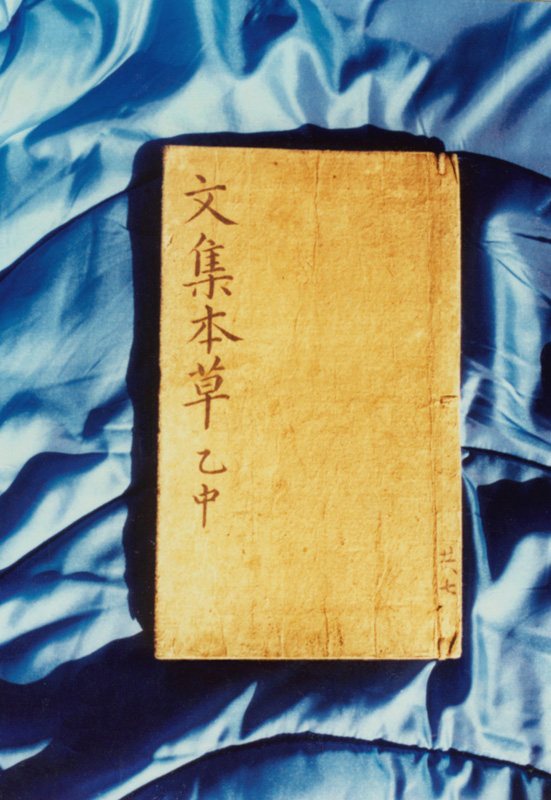 文集本草 乙中
廿八七